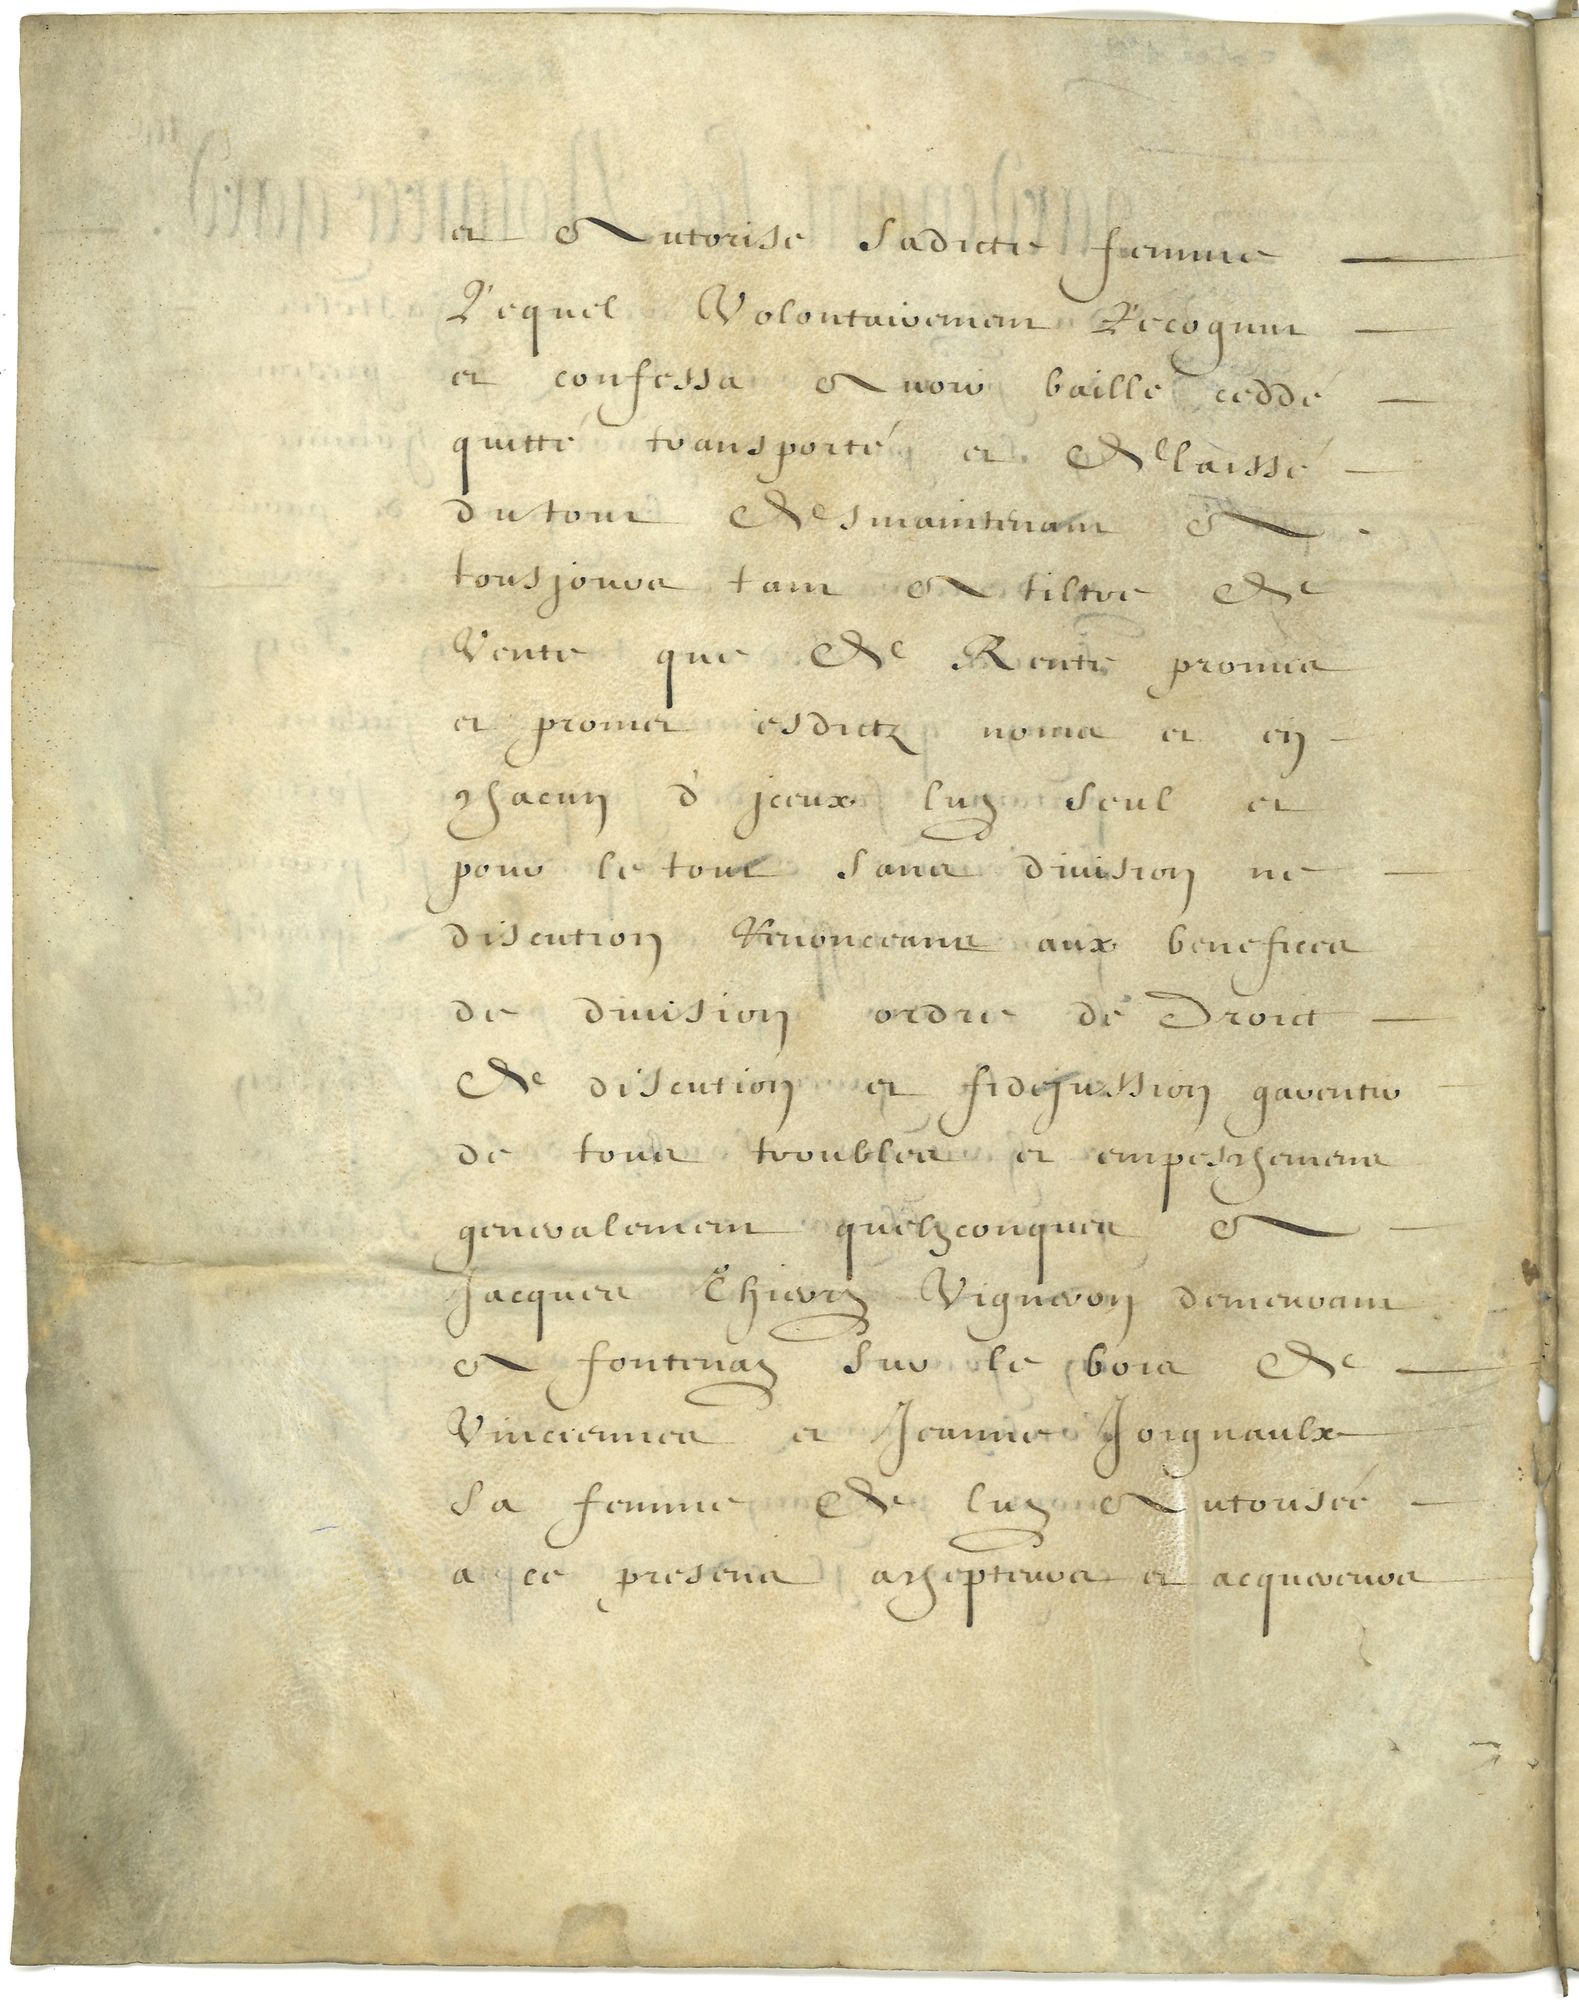 et Autorise Sadicte femme
Lequel Volontairement Recognut
et confessa Avoir baillé ceddé
quitté transporté et Delaissé
du tout Desmaintenant A
tousjours tant A tiltre De
Vente que De Rente promis
et promet esdictz noms et en
chacun d'iceux luy seul et
pour le tout Sans diuision ne
discution Renonceant aux benefices
de diuision ordre de Droict
De discution et fidejussion garentir
de tous troubles et empeschemens
generalement quelzconques A
Jacques Thierry Vigneron demeurant
A fontenay Sur le bois De
Vinciennes et Jeanne Joignaulx
Sa femme De luy Autorisée
a ce presens achepteurs et acquereurs